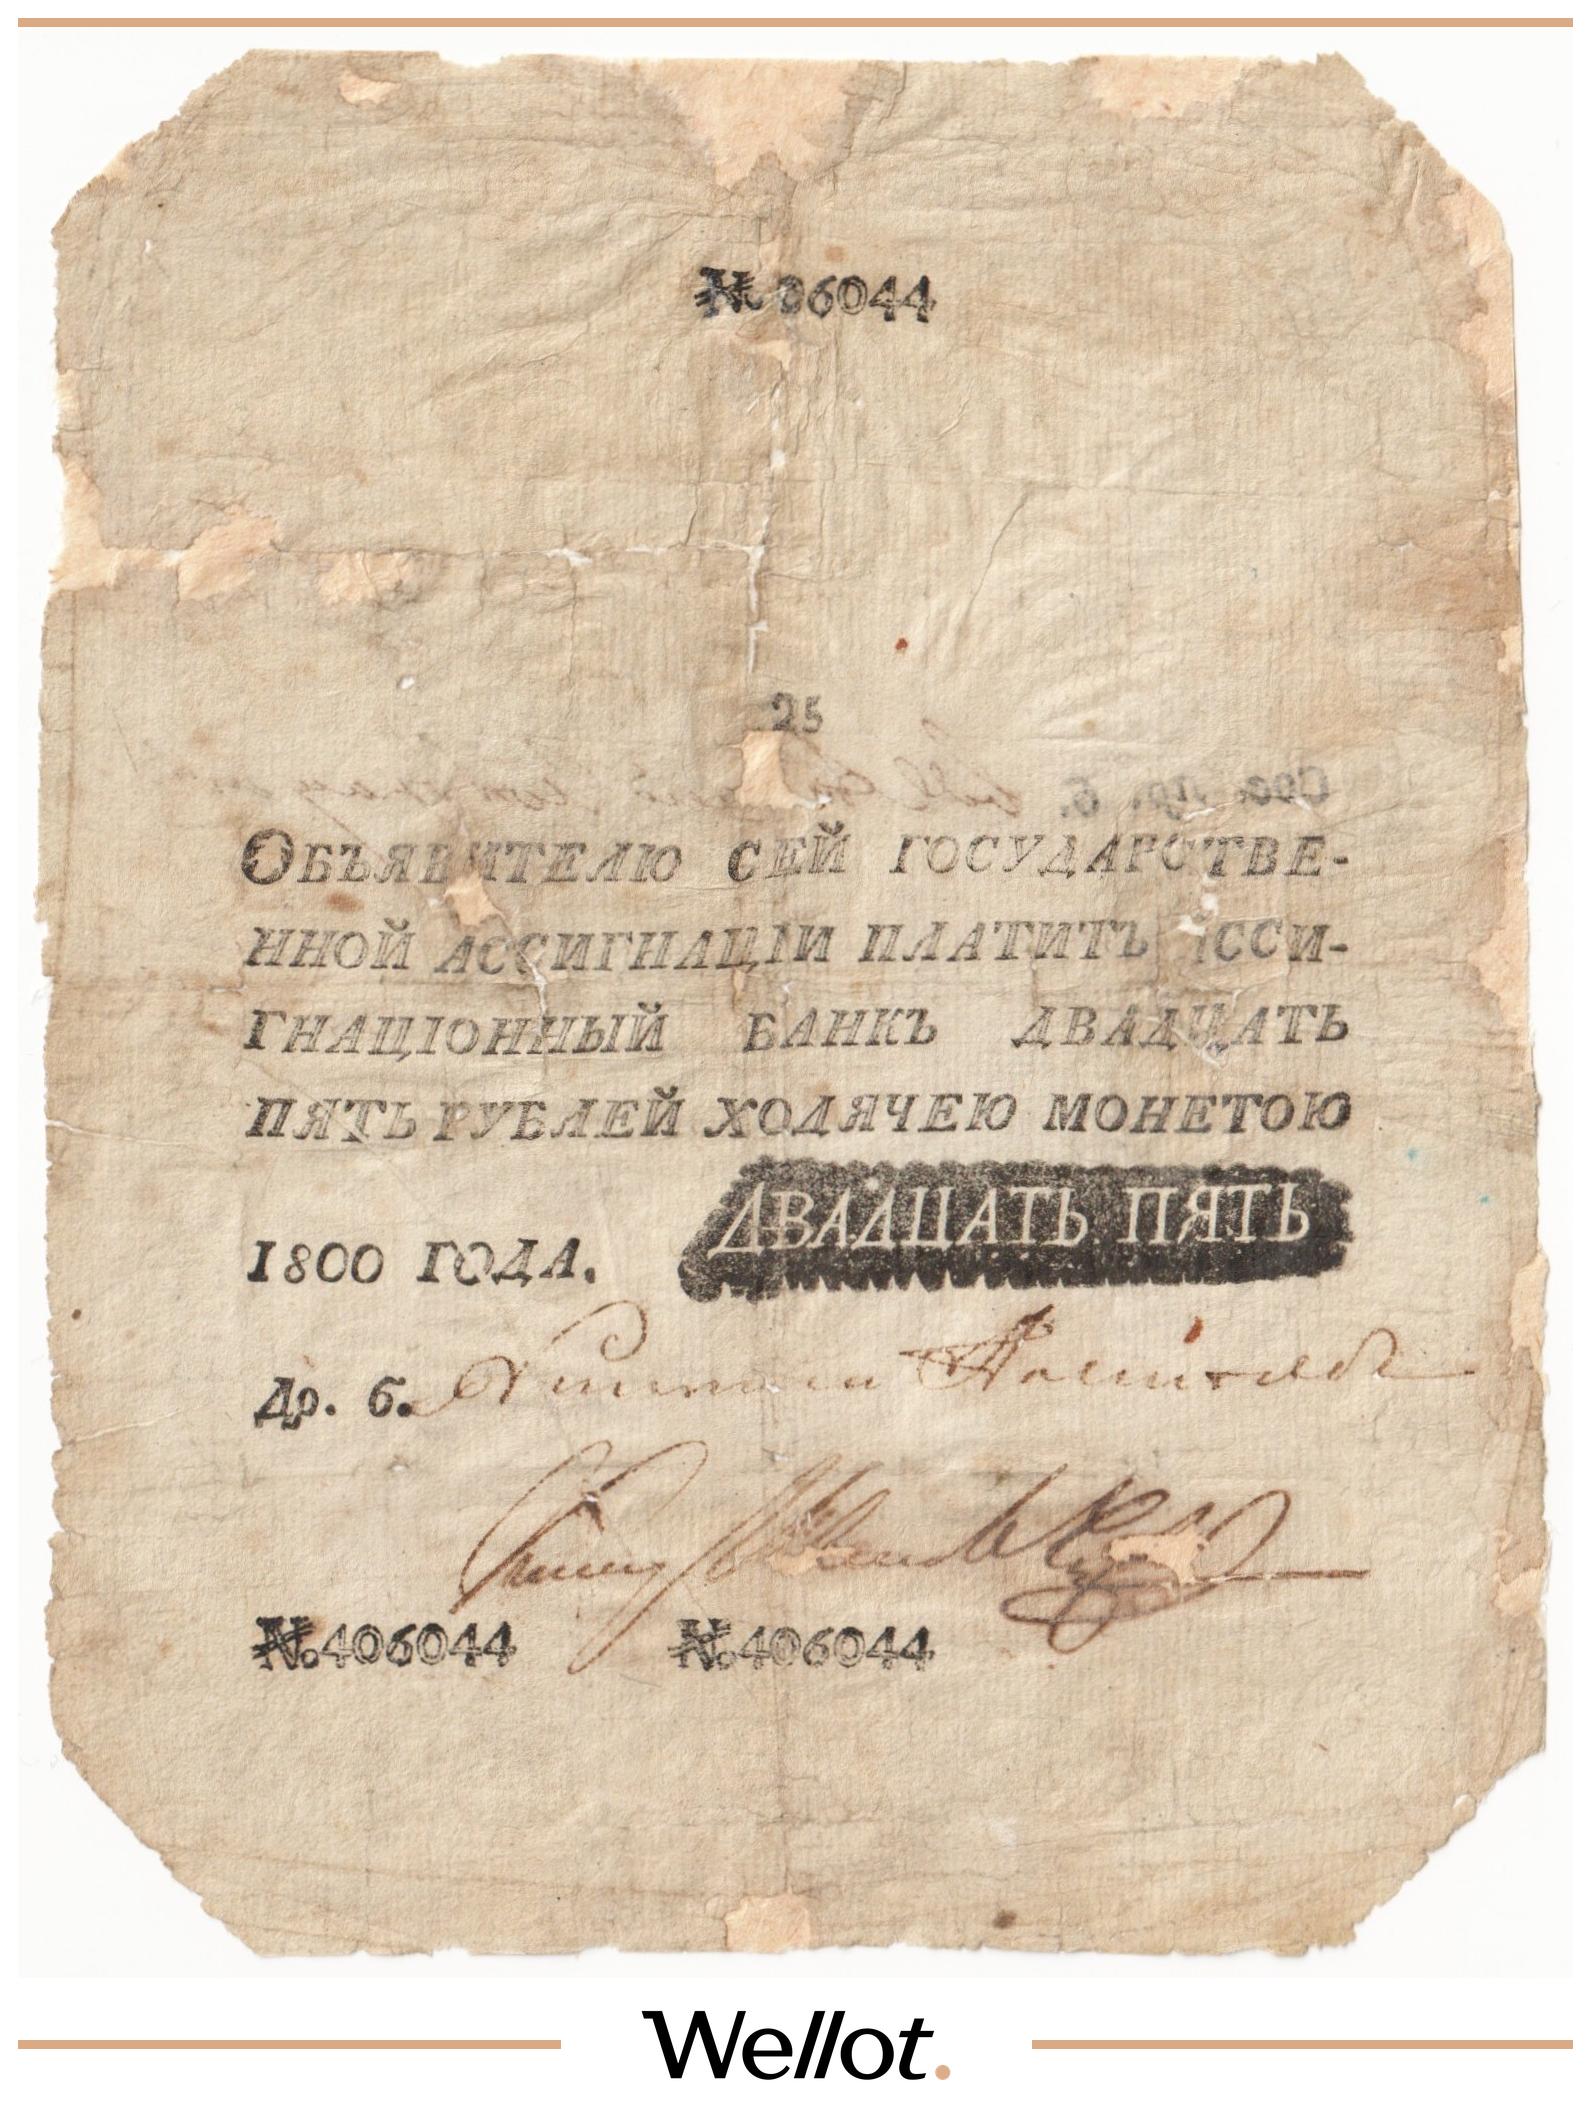 № 6044
25
ОБЪЯВИТЕЛЮ СЕЙ ГОСУДАРСТВЕ-
ННОЙ АССИГНАЦІИ ПЛАТИТЪ АССИ-
ГНАЦІОННЫЙ БАНКЪ ДВАДЦАТЬ
ПЯТЬ РУБЛЕЙ ХОДЯЧЕЮ МОНЕТОЮ
1800 ГОДА. ДВАДЦАТЬ ПЯТЬ
Др. б.
№.406044 №.406044
Wellot.